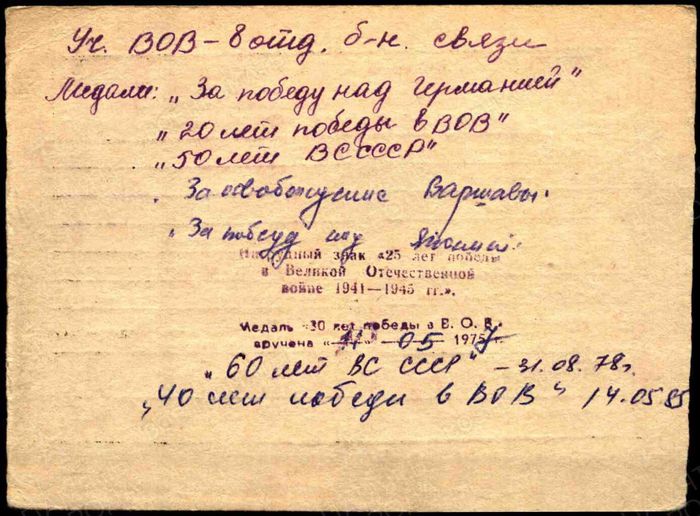 Уч. ВОВ – 8 отд. б-н. связи
Медали: „За победу над Германией"
„20 лет победы в ВОВ"
„50 лет ВС СССР"
„За освобождение Варшавы"
„За победу над Японией"
Нагрудный знак «25 лет победы
в Великой Отечественной
войне 1941—1945 гг.».
Медаль «30 лет победы в В. О. В.
вручена « » 05 1975
„60 лет ВС СССР" – 31.08.78г.
„40 лет победы в ВОВ" 14.05.85